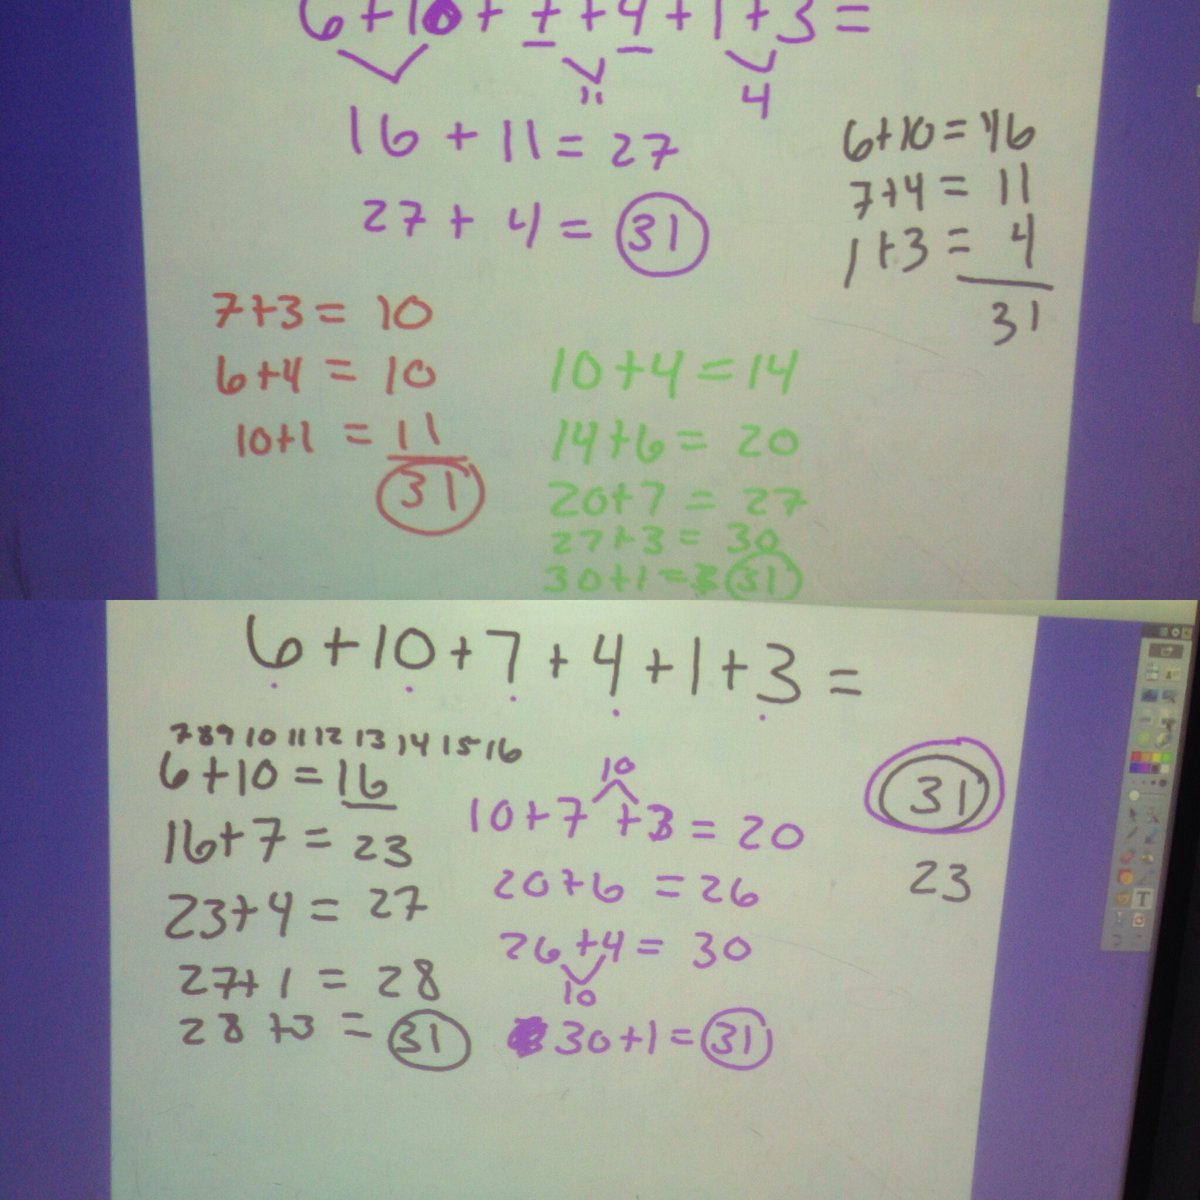 6 + 10 + 7 + 4 + 1 + 3 =
11
4
16 + 11 = 27
27 + 4 = 31
6+10 = 16
7+4 = 11
1+3 = 4
31
7+3 = 10
6+4 = 10
10+1 = 11
31
10+4 = 14
14+6 = 20
20+7 = 27
27+3 = 30
30+1 = 31
6 + 10 + 7 + 4 + 1 + 3 =
7 8 9 10 11 12 13 14 15 16
6+10 = 16
16+7 = 23
23+4 = 27
27+1 = 28
28+3 = 31
10
10+7+3 = 20
20+6 = 26
26+4 = 30
10
30+1 = 31
31
23
T